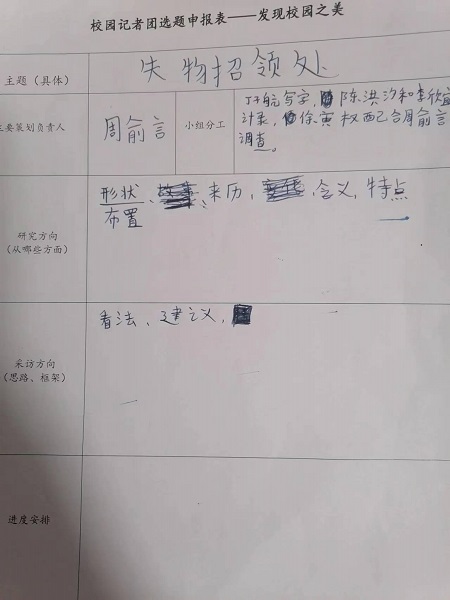 校园记者团选题申报表——发现校园之美
主题（具体）
失物招领处
主要策划负责人
周俞言
小组分工
于航写字，陈洪汐和李欣宜
计录，徐寅权西己合周俞言
调查。
研究方向
（从哪些方面）
形状、来历，含义，特点
布置
采访方向
（思路、框架）
看法、建议，
进度安排